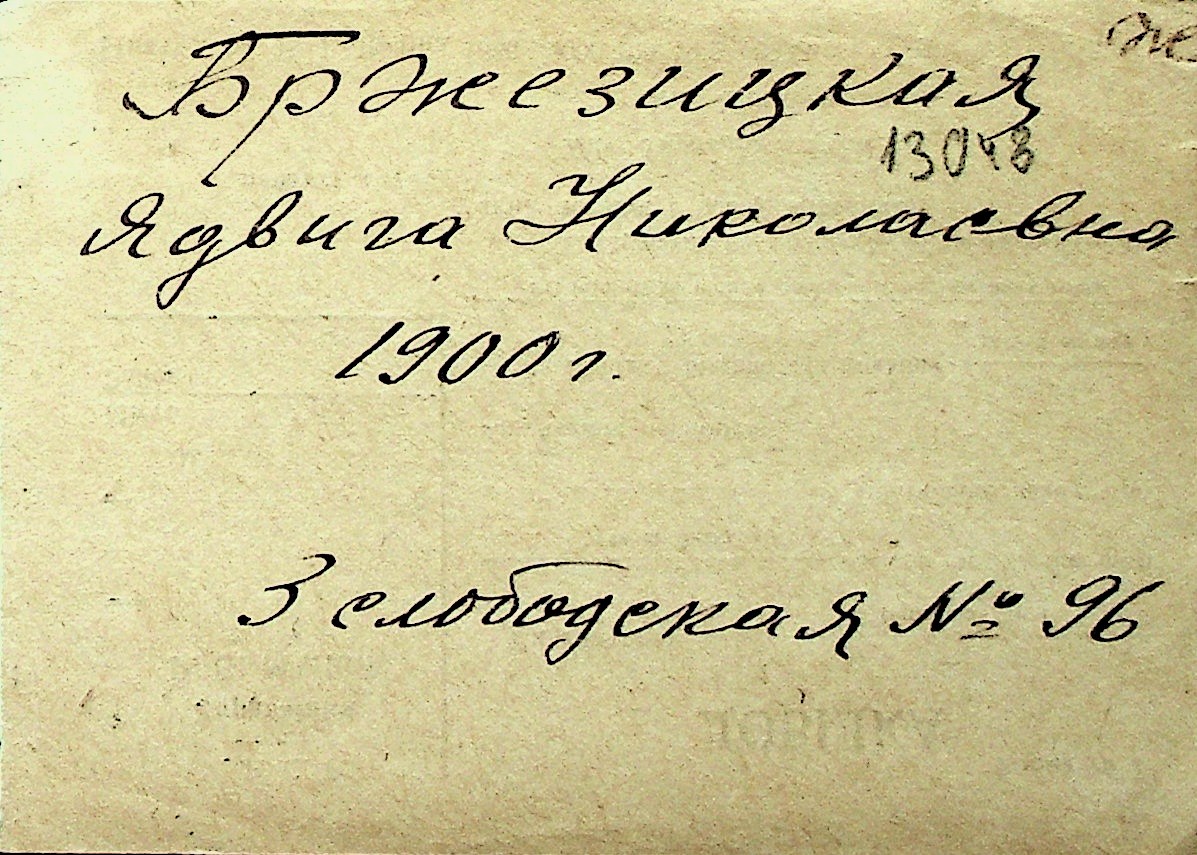 Бржезицкая
Ядвига Николаевна
1900 г.
3 слободская № 96